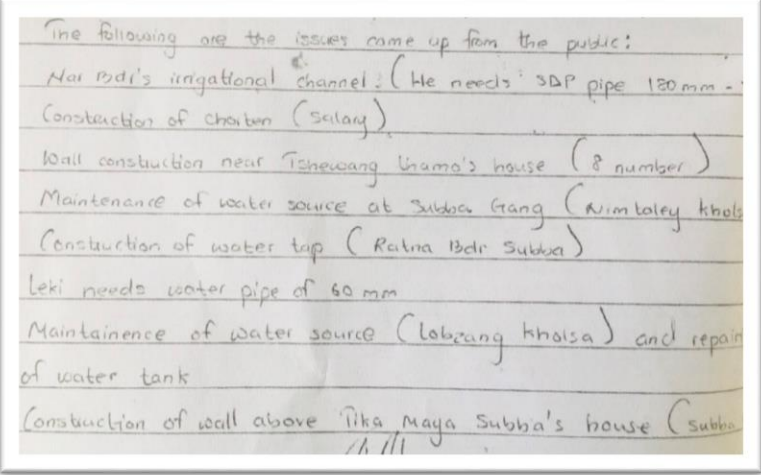 The following are the issues come up from the public:
Nar Bdr's irrigational channel: (He needs SDP pipe 180 mm -
Construction of chorten (Salary)
Wall constuction near Tshewang Lhamo's house (8 number)
Maintenance of water source at Subba Gang (Nimtoley khols
Constuction of water tap (Ratna Bdr Subba)
Leki needs water pipe of 60 mm
Maintainence of water source (Lobzang kholsa) and repair
of water tank
Constuction of wall above Tika Maya Subba's house (Subba